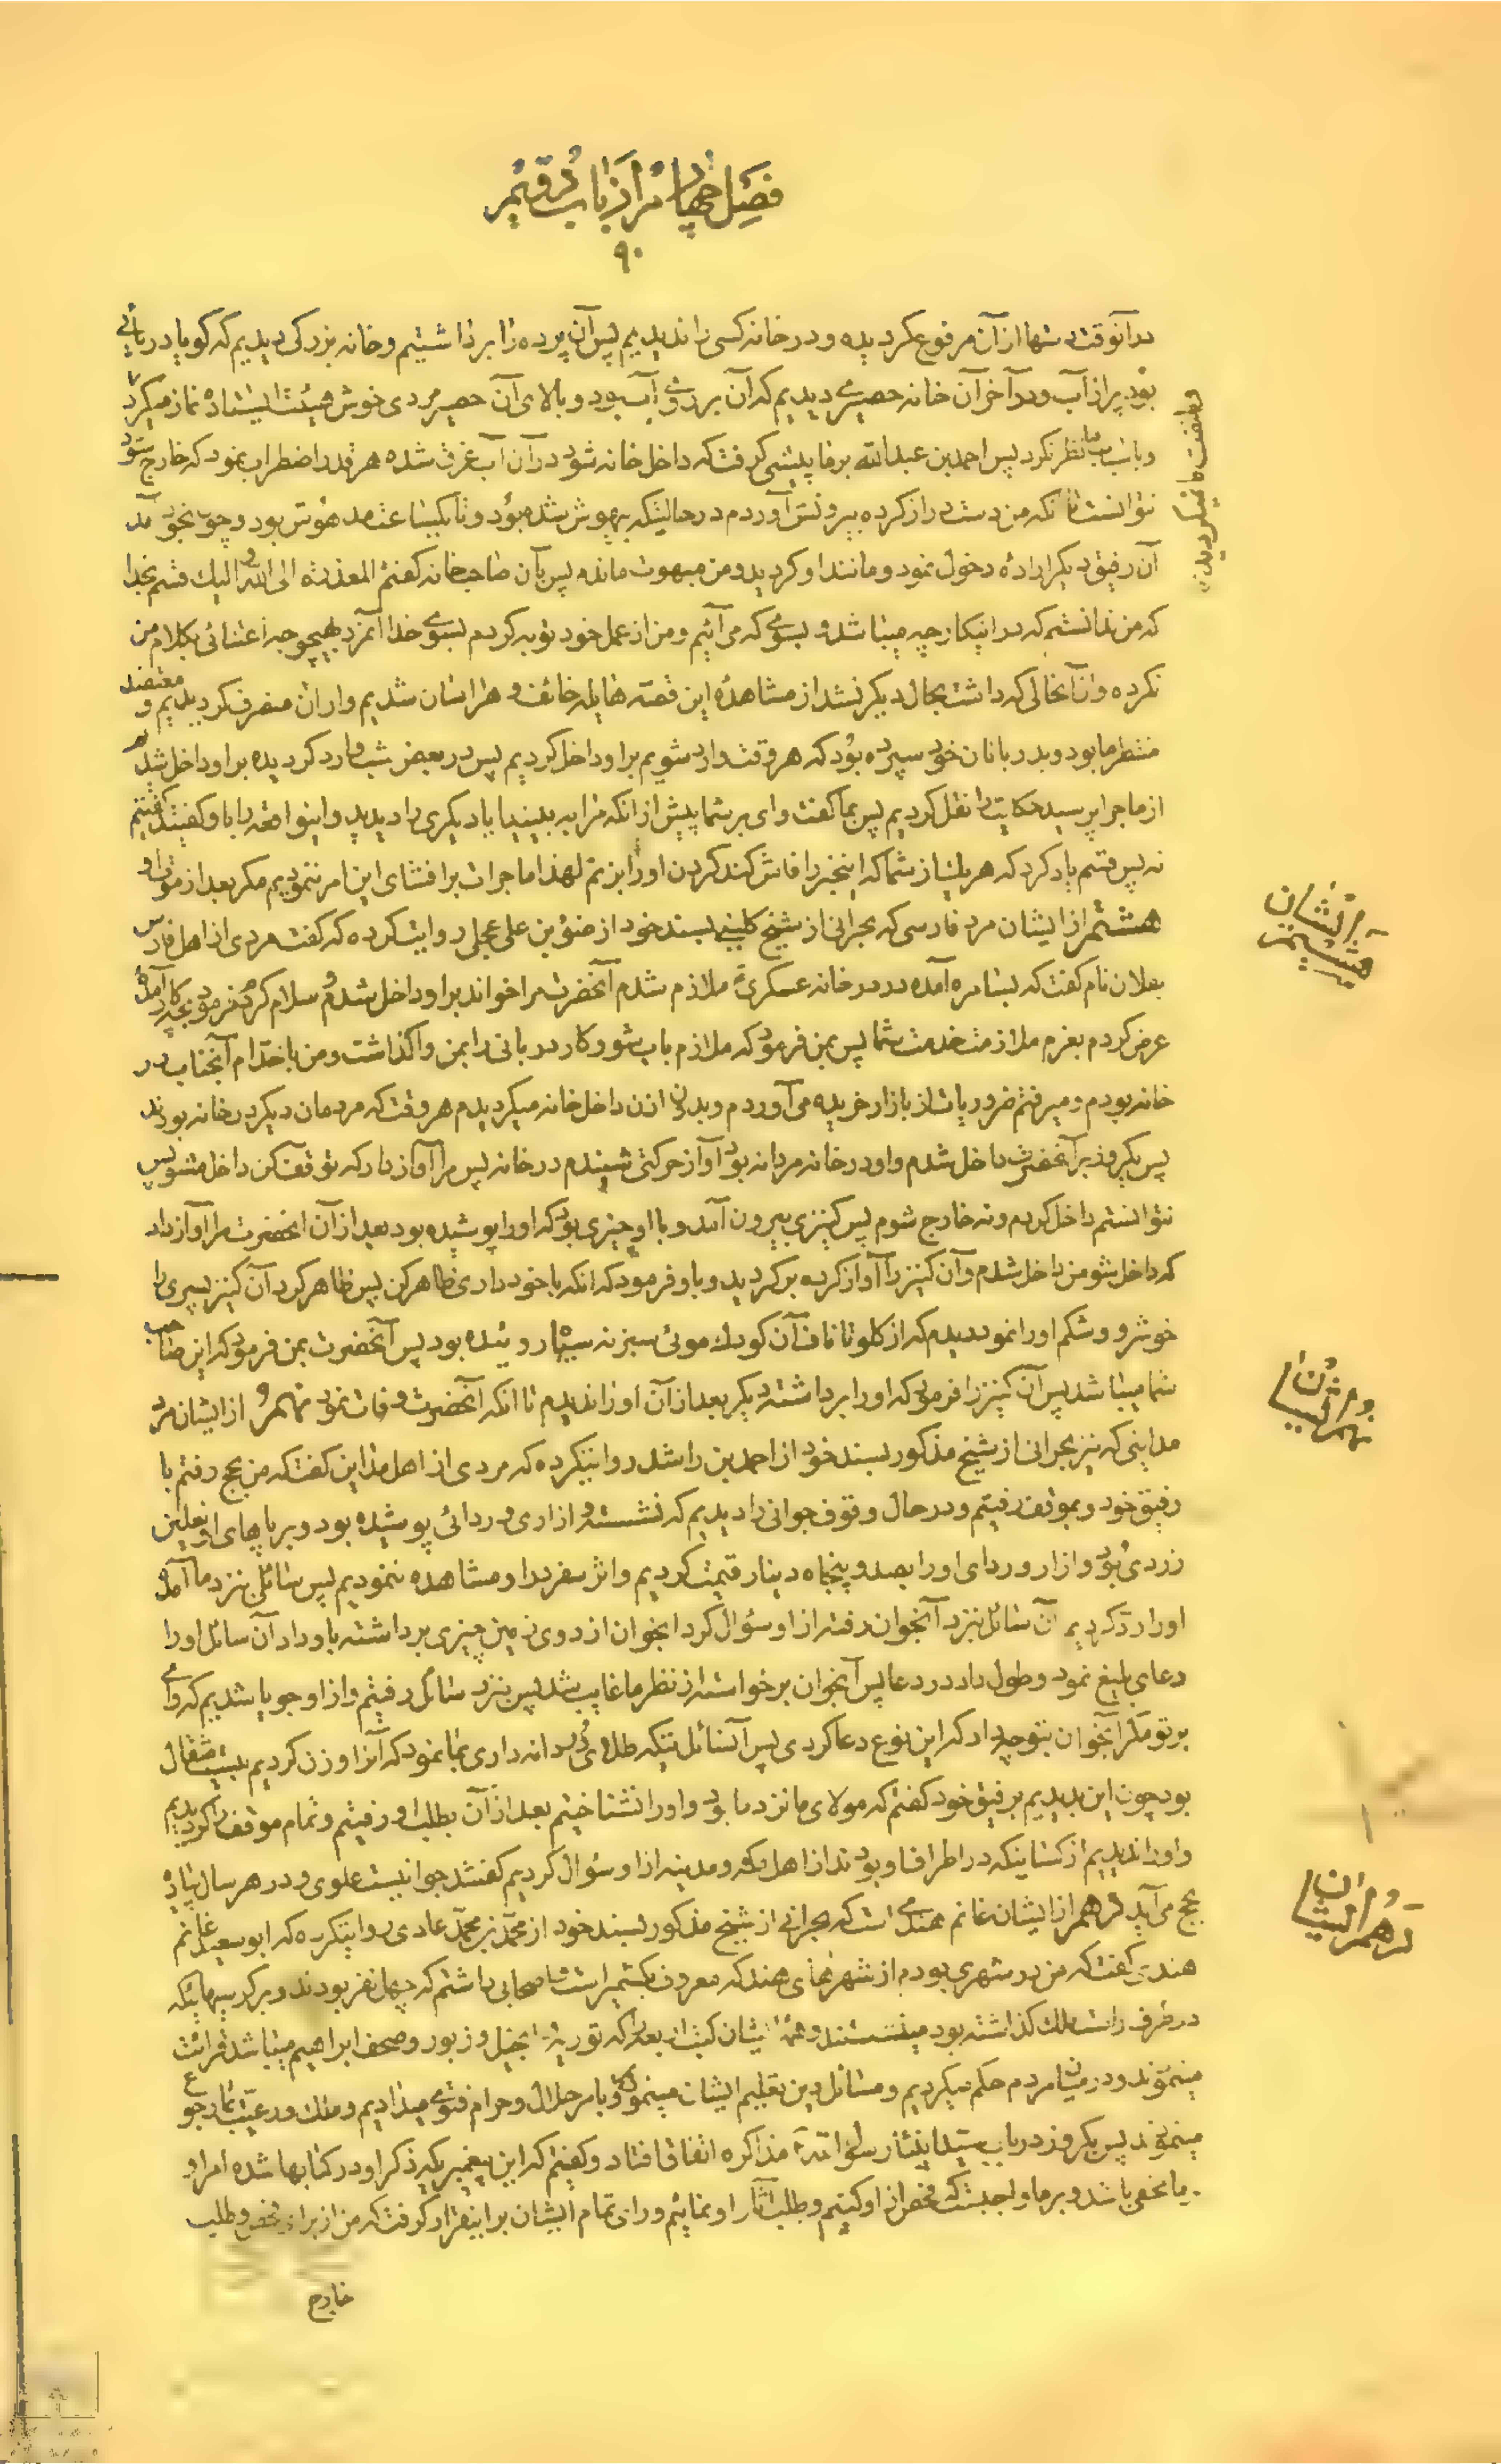 فصل چهارم از باب دویم
۹۰
در آنوقت دستها از آن مرفوع گردیده و در خانه کسی را ندیدیم پس آن پرده را برداشتیم و خانه بزرگی دیدیم که گویا دریائی
بود پر از آب و در آخر آن خانه حصیری دیدیم که آن بر روی آب بود و بالای آن حصیر مردی خوش هیئت ایستاده نماز میکرد
و باسباب ما نظر نکرد پس احمد بن عبدالله بر ما پیشی گرفت که داخل خانه شود در آن آب غرق شده هر قدر اضطراب نمود که خارج شود
نتوانست تا آنکه من دست دراز کرده بیرونش آوردم در حالتیکه بیهوش شده بود و تا یکساعت مدهوش بود و چون بخود آمد
آن رفیق دیگر اراده دخول نمود و مانند او گردید و من مبهوت مانده پس بآن صاحب خانه گفتم المعذرة الی الله و الیک قسم بخدا
که من ندانستم که در اینکار چه میباشد و بسوی که می آئیم و من از عمل خود توبه کردم بسوی خدا آنمرد بهیچوجه اعتنائی بکلام من
نکرده و از آنحالی که داشت بحال دیگر نشد از مشاهده این قصه هایله خائف و هراسان شدیم و از آن منصرف گردیدیم و معتضد
منتظر ما بود و بدربانان خود سپرده بود که هر وقت وارد شویم بر او داخل کردیم پس در بعض شب وارد گردیده بر او داخل شدیم
از ماجرا پرسید حکایت را نقل کردیم پس بما گفت وای بر شما پیش از آنکه مرا به بینید آیا دیگری را دیدید و اینواقعه را با او گفتید گفتیم
نه پس قسم یاد کرد که هر یک از شما که اینخبر را فاش کند گردن او را بزنم لهذا ما جرات بر افشای این امر ننمودیم مگر بعد از موت او
هشتم از ایشان مرد فارسی که بحرانی از شیخ کلینی بسند خود از ضوء بن علی عجلی روایت کرده که گفت مردی از اهل فارس
بعلان نام گفت که بسامره آمده در در خانه عسکری ملازم شدم آنحضرت مرا خواند بر او داخل شدم و سلام کردم فرمود بچه کار آمدهٔ
عرض کردم بعزم ملازمت خدمت شما پس بمن فرمود که ملازم باب شو و کار دربانی را بمن واگذاشت و من با خدام آنجناب در
خانه بودم و میرفتم ضروریات از بازار خریده می آوردم و بدون اذن داخل خانه میگردیدم هر وقت که مردمان دیگر در خانه بودند
پس یکروز بر آنحضرت داخل شدم و او در خانه مردانه بود آواز حرکتی شنیدم در خانه پس مرا آواز داد که توقف کن داخل مشو پس
نتوانستم داخل گردم و نه خارج شوم پس کنیزی بیرون آمد و با او چیزی بود که او را پوشیده بود بعد از آن انحضرت مرا آواز داد
که داخل شو من داخل شدم و آن کنیز را آواز کرده برگردید و باو فرمود که انکه با خود داری ظاهر کن پس ظاهر کرد آن کنیز پسری را
خوش رو و شکم او را نمود دیدم که از گلو تا ناف آن کودک موئی سبز نه سیاه روئیده بود پس آنحضرت بمن فرمود که این صاحب
شما میباشد پس آن کنیز را فرمود که او را برداشته دیگر بعد از آن او را ندیدم تا انکه آنحضرت وفات نمود نهم از ایشان مرد
مداینی که نیز بحرانی از شیخ مذکور بسند خود از احمد بن راشد روایتکرده که مردی از اهل مداین گفت که من بحج رفتم با
رفیق خود و بموقف رفتیم و در حال وقوف جوانی را دیدیم که نشسته و ازاری و ردائی پوشیده بود و بر پاهای او نعلین
زردی بود و ازار و ردای او را بصد و پنجاه دینار قیمت کردیم و اثر سفر در او مشاهده ننمودیم پس سائلی بنزد ما آمده
او را رد کردیم آن سائل بنزد آنجوان رفته از او سؤال کرد انجوان از روی زمین چیزی برداشته باو داد آن سائل او را
دعای بلیغ نمود و طول داد در دعا پس آنجوان برخواسته از نظر ما غایب شد پس بنزد سائل رفتیم و از او جویا شدیم که وای
بر تو مگر آنجوان بتو چه داد که این نوع دعا کردی پس آنسائل تیکه طلای دندانه داری بما نمود که آنرا وزن کردیم بیست مثقال
بود چون این بدیدیم برفیق خود گفتم که مولای ما نزد ما بود و او را نشناختیم بعد از آن بطلب او رفتیم و تمام موقف را گردیدیم
و او را ندیدیم از کسانیکه در اطراف او بودند از اهل مکه و مدینه از او سؤال کردیم گفتند جوانیست علوی و در هر سال پیاده
بحج می آید دهم از ایشان غانم هندی است که بحرانی از شیخ مذکور بسند خود از محمد بن محمد عامری روایتکرده که ابو سعید غانم
هندی گفت که من در شهری بودم از شهرهای هند که معروف بکشمیر است و اصحابی داشتم که چهل نفر بودند و بر کرسیهائیکه
در طرف راست ملک گذاشته بود مینشستند و همهٔ ایشان کتب اربعه را که توریة و انجیل و زبور و صحف ابراهیم میباشد قرائت
مینمودند و در میان مردم حکم میکردیم و مسائل دین تعلیم ایشان مینمودیم و بامر حلال و حرام فتوی میدادیم و ملک و رعیت بما رجوع
مینمودند پس یکروز در باب سید ما پیغمبر رسول الله مذاکره اتفاق افتاد و گفتیم که این پیغمبریکه ذکر او در کتابها شده امر او
بر ما مخفی باشد و بر ما واجبست که فحص از او کنیم و طلب آثار او نمائیم و رای تمام ایشان بر اینقرار گرفت که من از برای فحص و طلب
خارج
از ایشان
هشتم
نهم از ایشان
دهم از ایشان